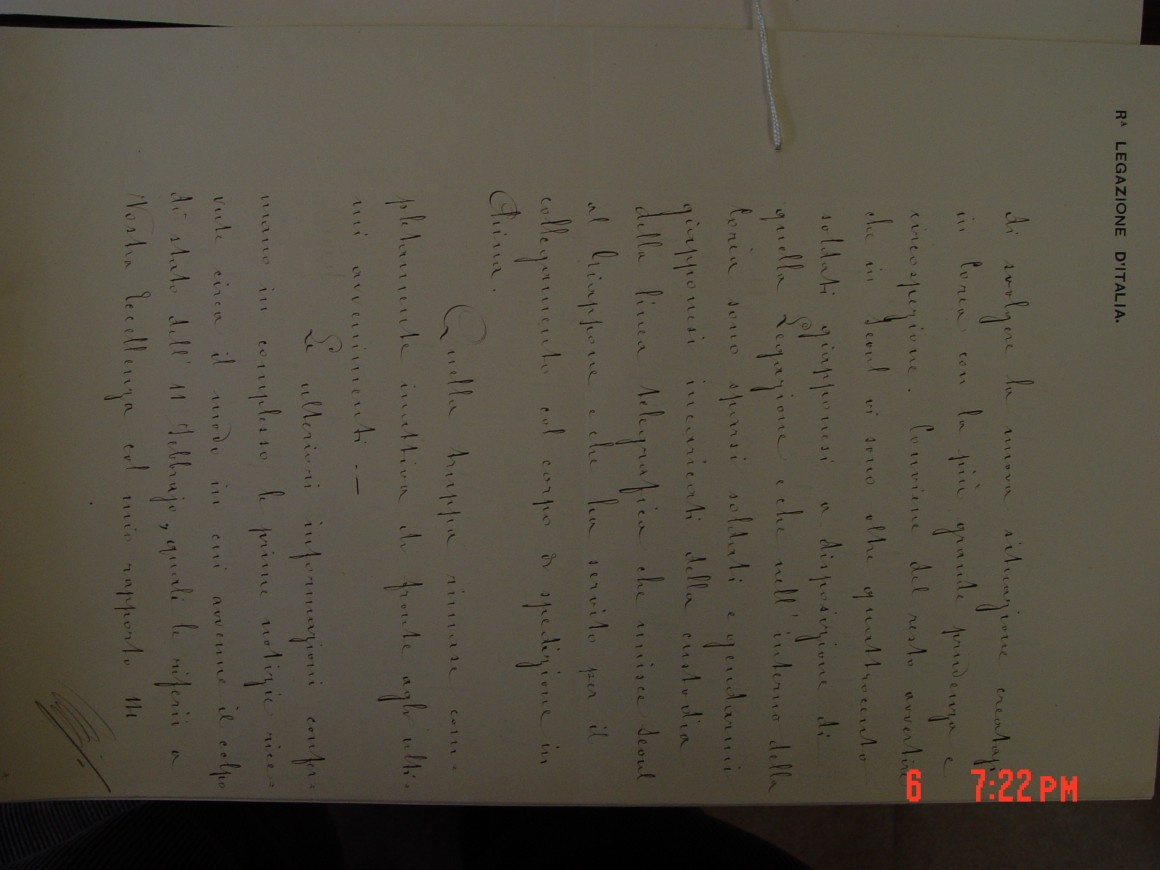 Rᴬ LEGAZIONE D'ITALIA.
di svolgere la nuova situazione creatasi
in Corea con la più grande prudenza e
circospezione. Conviene del resto avvertire
che in Seoul vi sono oltre quattrocento
soldati giapponesi a disposizione di
quella Legazione e che nell'interno della
Corea sono sparsi soldati e gendarmi
giapponesi incaricati della custodia
della linea telegrafica che unisce Seoul
al Giappone e che ha servito per il
collegamento col corpo di spedizione in
China.
Quella truppa rimase com-
pletamente inattiva di fronte agli ulti-
mi avvenimenti. —
Le ulteriori informazioni confer-
mano in complesso le prime notizie rice-
vute circa il modo in cui avvenne il colpo
di stato dell' 11 Febbrajo, quali le riferii a
Vostra Eccellenza col mio rapporto
6 7:22 PM